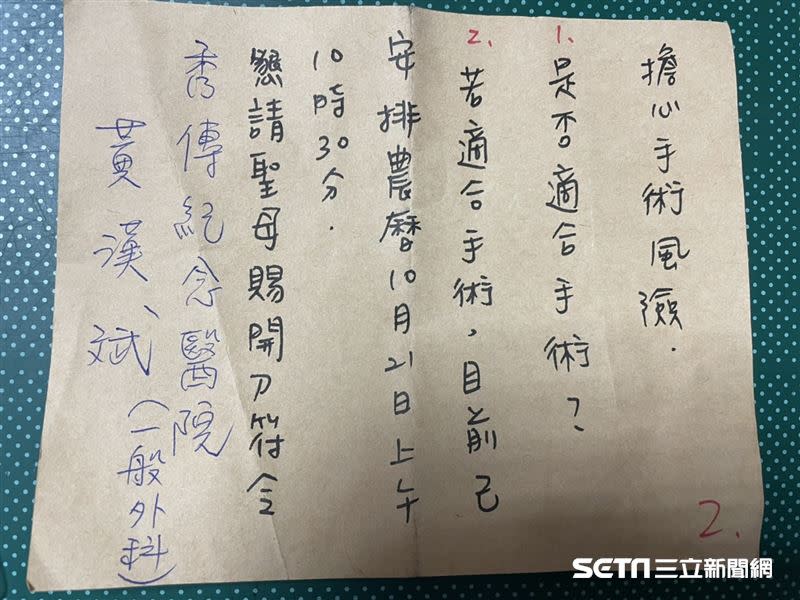 擔心手術風險.
1.是否適合手術?
2.若適合手術,目前已
安排農曆10月21日上午
10時30分.
懇請聖母賜開刀符令
秀傳紀念醫院
黃漢斌(一般外科)
2.
SETN三立新聞網